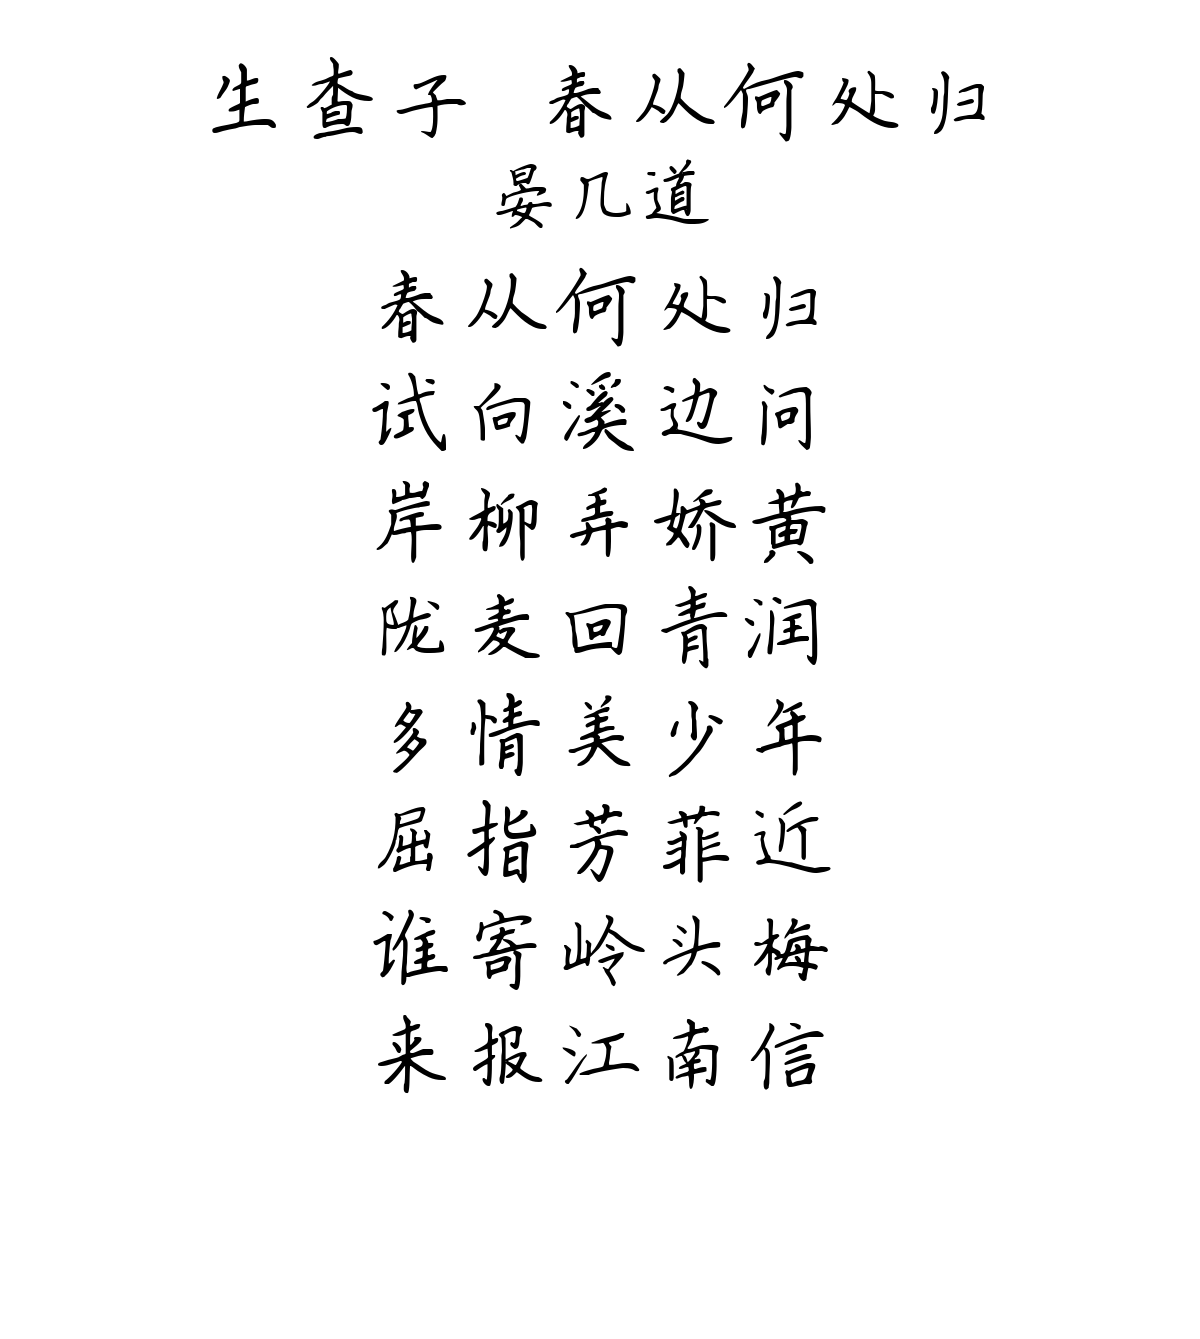 生查子 春从何处归
晏几道
春从何处归
试向溪边问
岸柳弄娇黄
陇麦回青润
多情美少年
屈指芳菲近
谁寄岭头梅
来报江南信